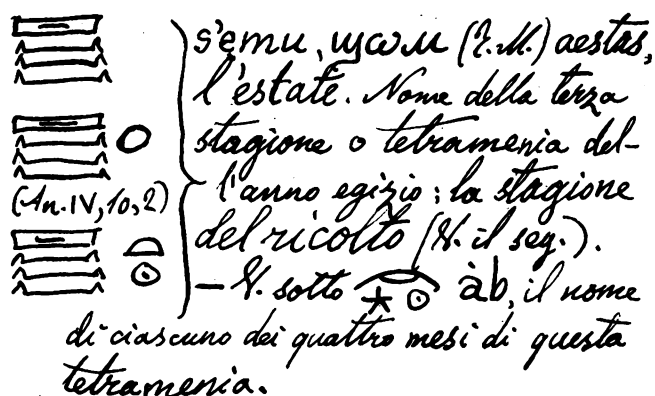 𓈙𓈗
𓈙𓈗𓇳
(An. IV, 10, 2)
𓈙𓈗𓏏𓇳
s'emu, ϣⲱⲙ (T.M.) aestas,
l'estate. Nome della terza
stagione o tetramenia del-
l'anno egizio; la stagione
del ricolto (V. il seg.).
— V. sotto 𓇹𓇼𓇳 àb, il nome
di ciascuno dei quattro mesi di questa
tetramenia.